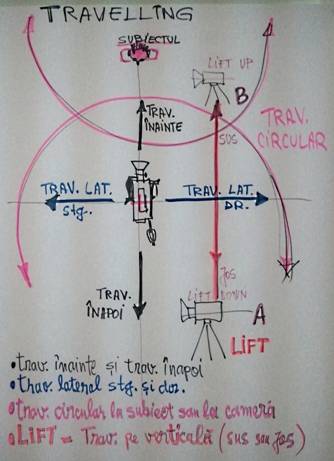 TRAVELLING
SUBIECTUL
LIFT UP
B
TRAV.
ÎNAINTE
SUS
TRAV.
CIRCULAR
TRAV. LAT.
stg.
TRAV. LAT.
DR.
TRAV.
ÎNAPOI
JOS
LIFT DOWN
A
LIFT
• trav. înainte și trav. înapoi
• trav. lateral stg. și dr.
• trav. circular la subiect sau la cameră
• LIFT = Trav. pe verticală (sus sau jos)